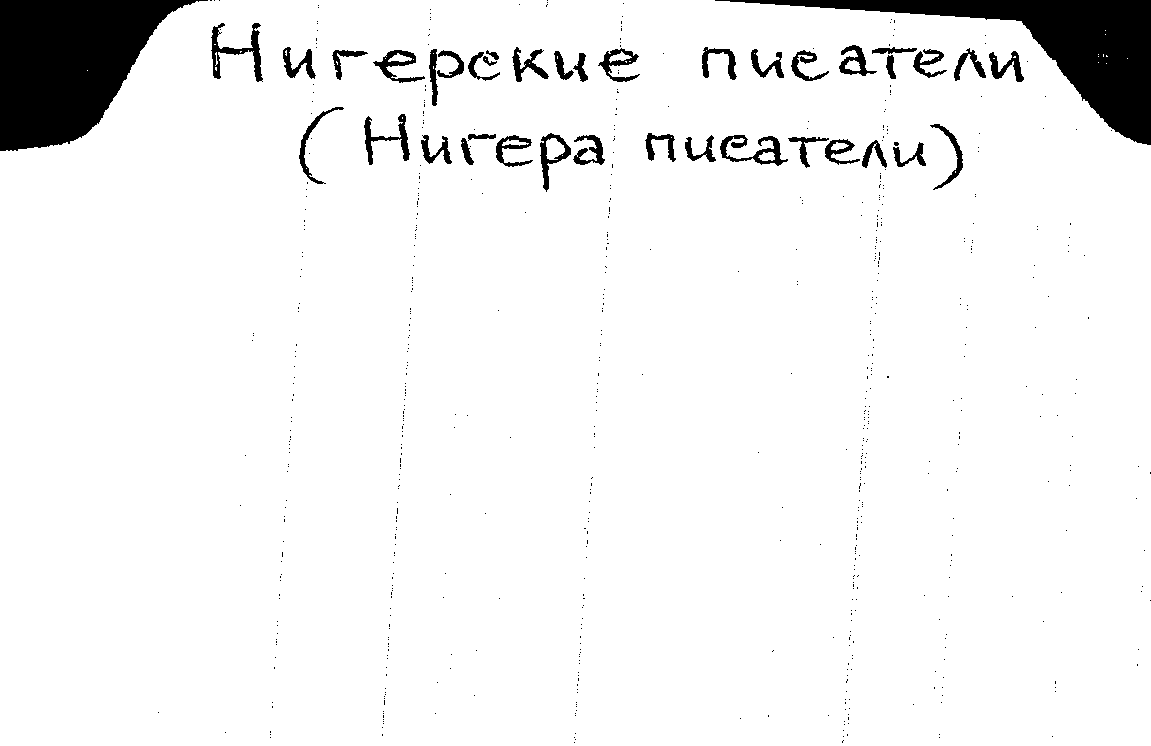 Нигерские писатели
(Нигера писатели)